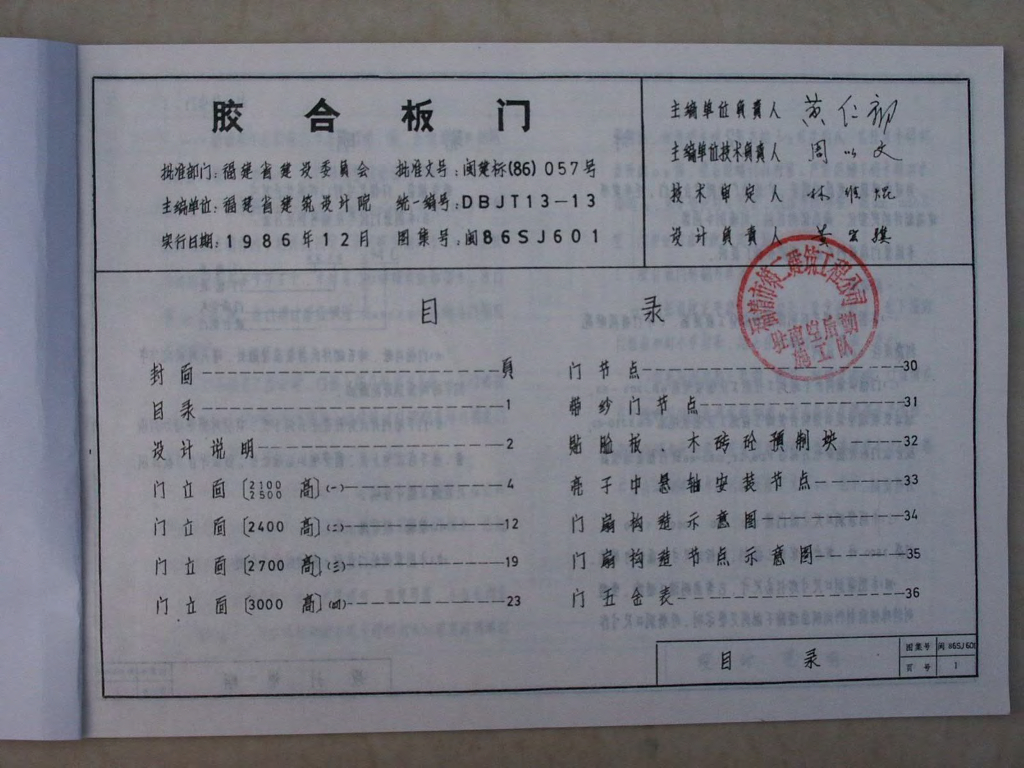 胶合板门
批准部门:福建省建设委员会 批准文号:闽建标(86)057号
主编单位:福建省建筑设计院 统一编号:DBJT13-13
实行日期:1986年12月 图集号:闽86SJ601
主编单位负责人 黄仁初
主编单位技术负责人 周
技术审定人 林
设计负责人 黄
目 录
封面 頁
目录 1
设计说明 2
门立面〔2100 2500 高〕(一) 4
门立面〔2400 高〕(二) 12
门立面〔2700 高〕(三) 19
门立面〔3000 高〕(四) 23
门节点 30
带纱门节点 31
贴脸板 木砖砼预制块 32
亮子中悬轴安装节点 33
门扇构造示意图 34
门扇构造节点示意图 35
门五金表 36
福清市第二建筑工程公司
施工队
目 录
图集号 闽86SJ601
页号 1